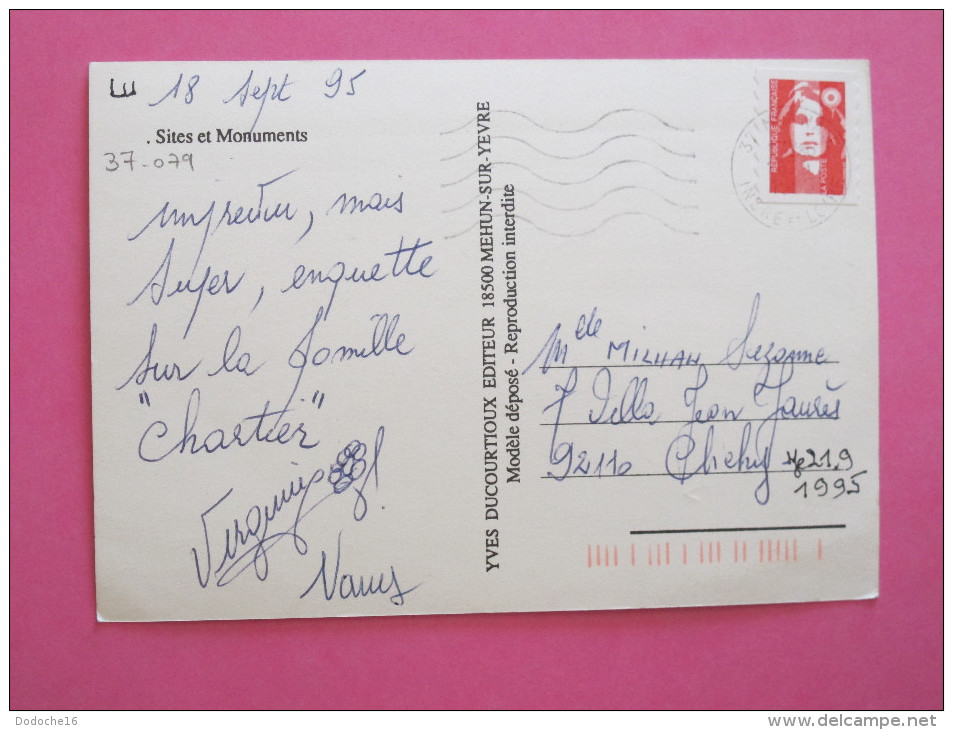 LE 18 Sept 95
. Sites et Monuments
37-079
imprévu, mais
super, enquette
sur la famille
"Chartier"
Virginie
Nanny
YVES DUCOURTIOUX EDITEUR 18500 MEHUN-SUR-YEVRE
Modèle déposé - Reproduction interdite
REPUBLIQUE FRANÇAISE
LA POSTE
37
INDRE ET LOIRE
Mde MILHAN Sezanne
7 Villa Jean Jaurès
92110 Clichy
21,9
1995
Dodoche16
www.delcampe.net